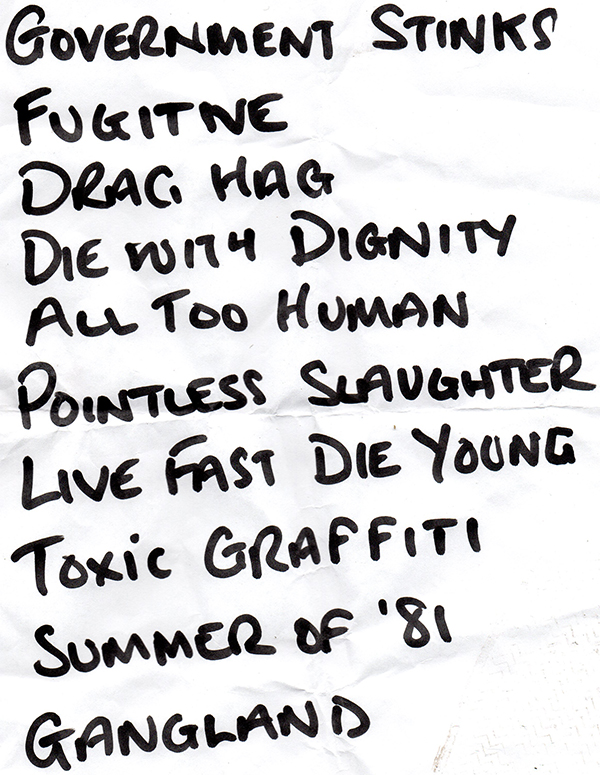 GOVERNMENT STINKS
FUGITIVE
DRAG HAG
DIE WITH DIGNITY
ALL TOO HUMAN
POINTLESS SLAUGHTER
LIVE FAST DIE YOUNG
TOXIC GRAFFITI
SUMMER OF '81
GANGLAND